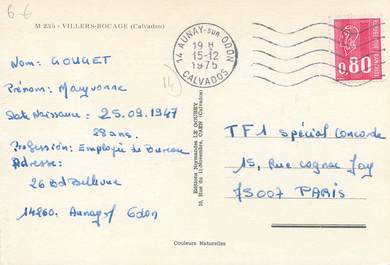 6-6
M 235 - VILLERS-BOCAGE (Calvados)
14 AUNAY-sur-ODON
19 H
15-12
1975
CALVADOS
0,80
14
Nom: GOUGET
Prénom: Maryvonne
Date Naissance: 25.09.1947
28 ans.
Profession: Employée de Bureau
Adresse:
26 Bd Bellevue
14260. Aunay s/ Odon
Editions Normandes LE GOUBEY
10, Rue du 11-Novembre, CAEN (Calvados)
TF1 spécial Concorde
15, Rue Cognac Jay
75007 PARIS
Couleurs Naturelles